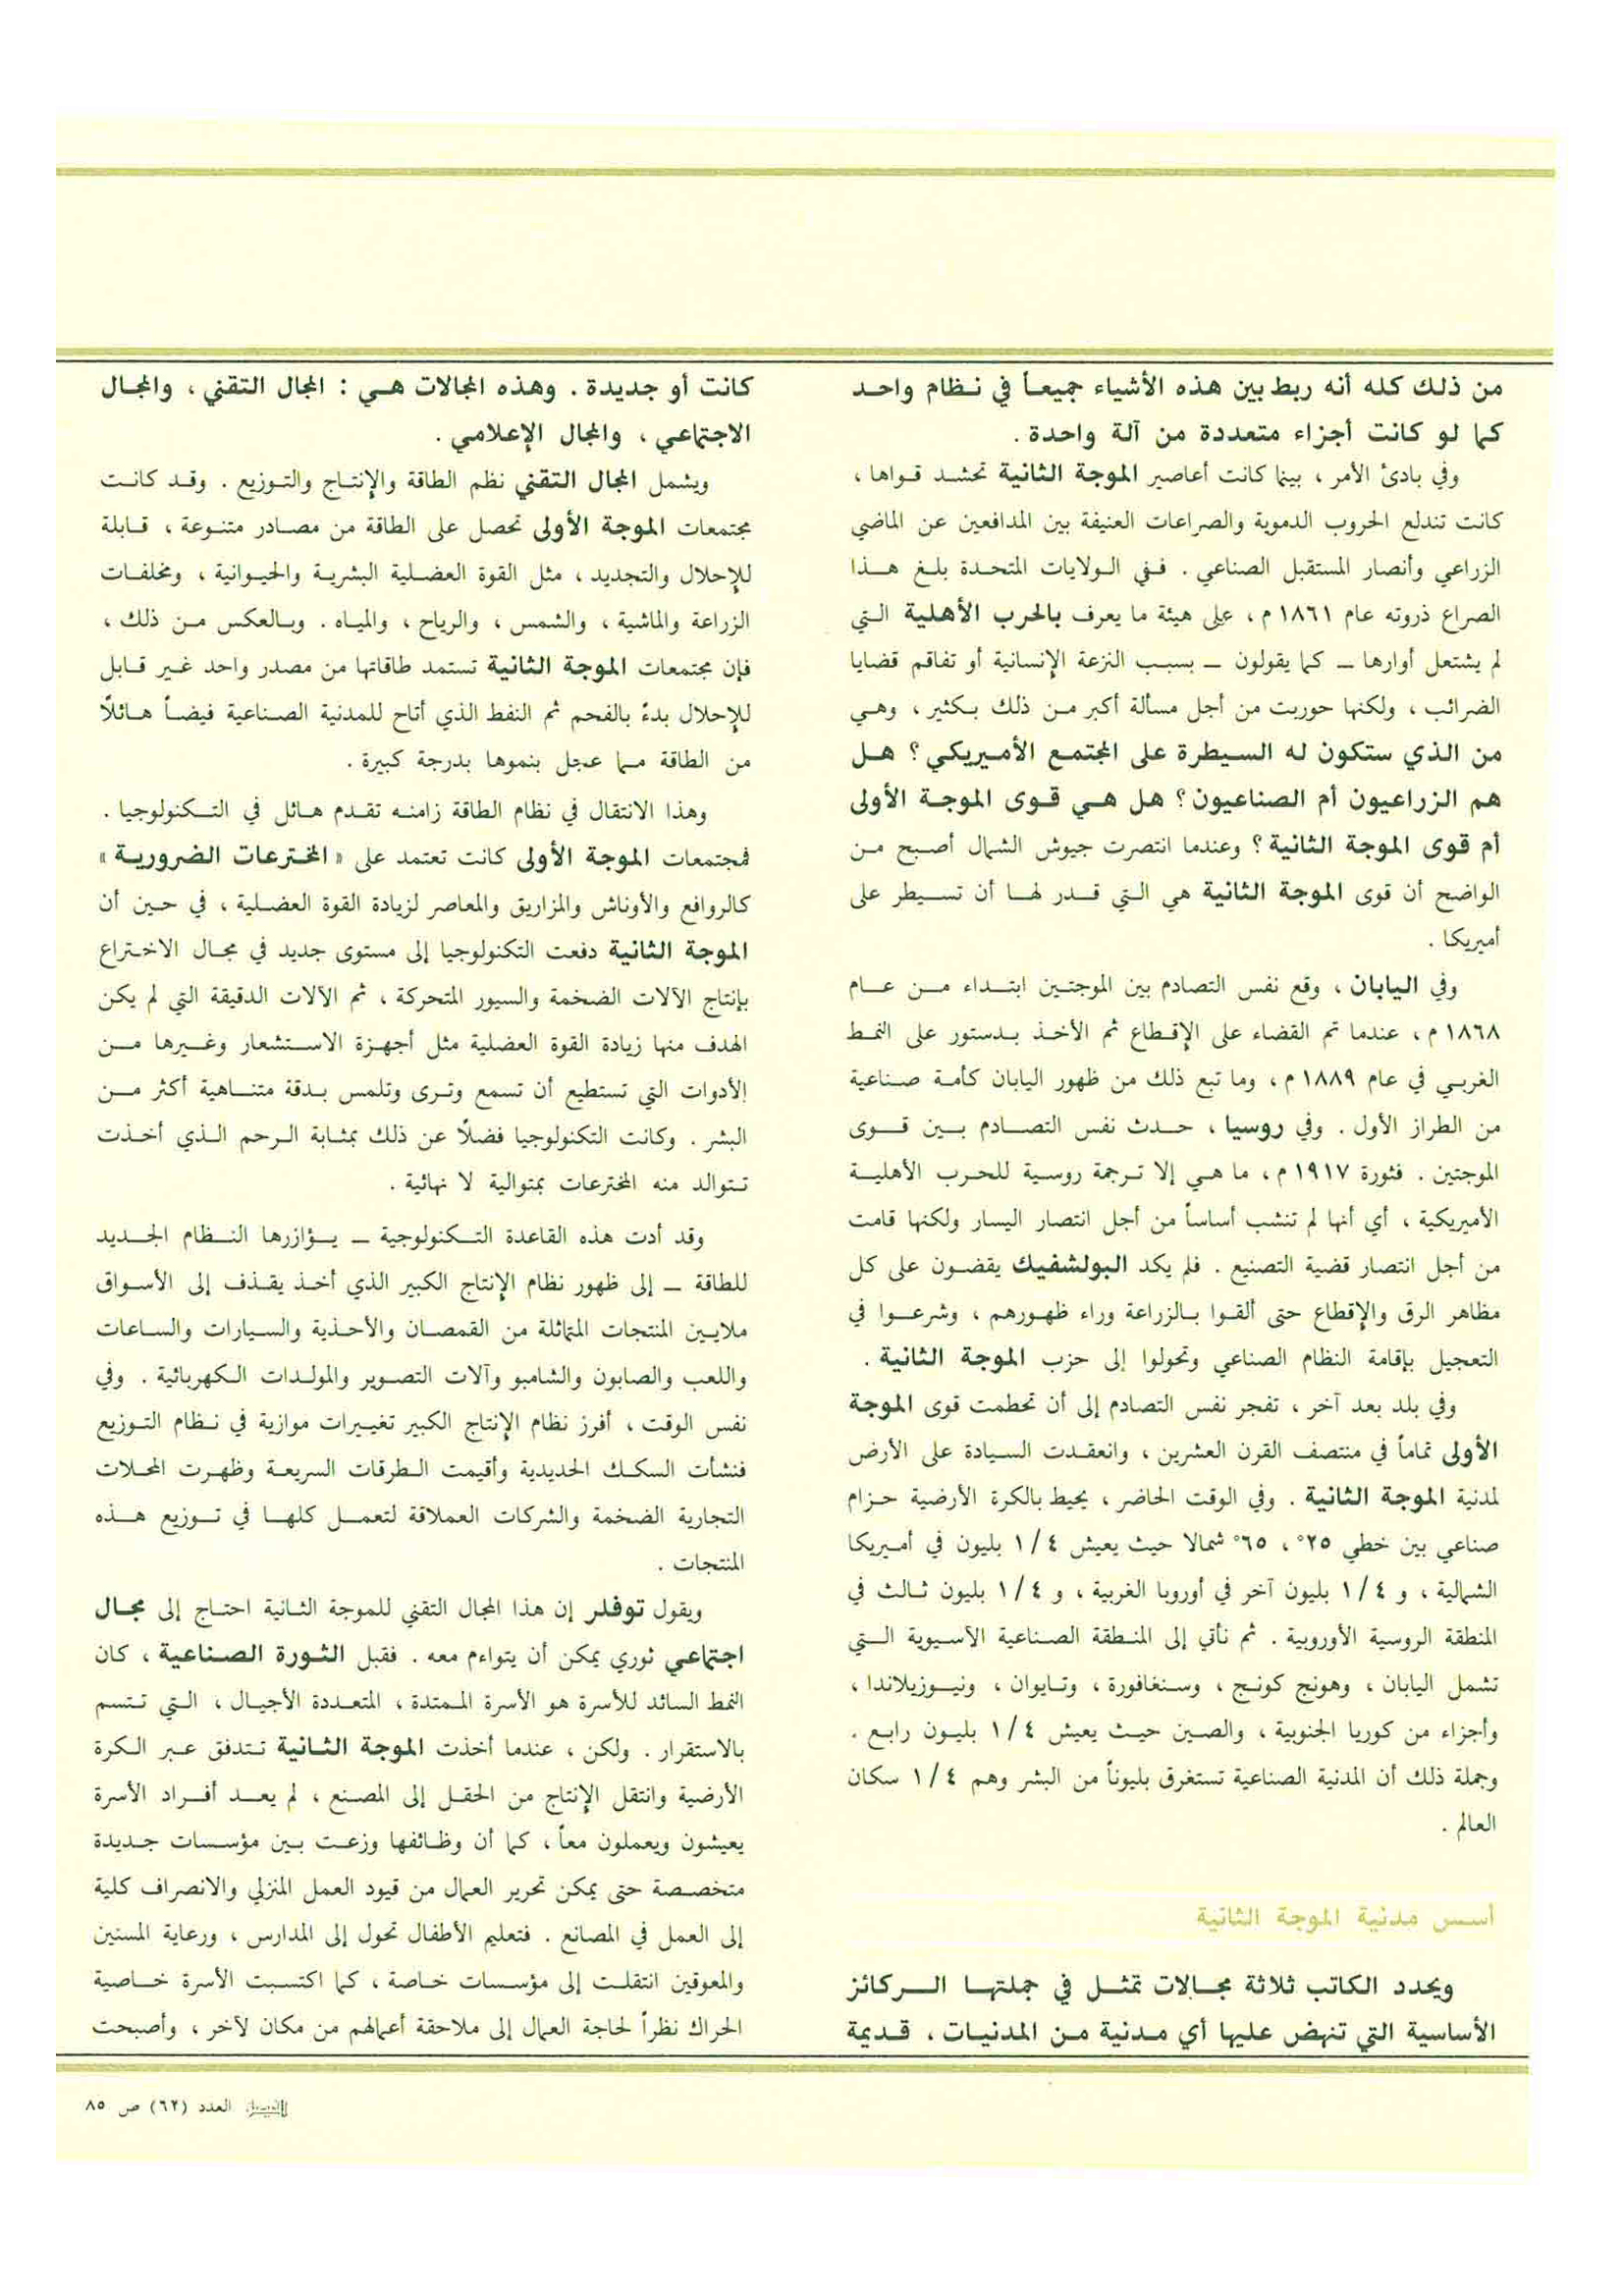 من ذلك كله أنه ربط بين هذه الأشياء جميعاً في نظام واحد
كما لو كانت أجزاء متعددة من آلة واحدة .
وفي بادئ الأمر ، بينما كانت أعاصير الموجة الثانية تحشد قواها ،
كانت تندلع الحروب الدموية والصراعات العنيفة بين المدافعين عن الماضي
الزراعي وأنصار المستقبل الصناعي . ففي الولايات المتحدة بلغ هذا
الصراع ذروته عام ١٨٦١ م ، على هيئة ما يعرف بالحرب الأهلية التي
لم يشتعل أوارها – كما يقولون – بسبب النزعة الإنسانية أو تفاقم قضايا
الضرائب ، ولكنها حوربت من أجل مسألة أكبر من ذلك بكثير ، وهي
من الذي ستكون له السيطرة على المجتمع الأميريكي ؟ هل
هم الزراعيون أم الصناعيون ؟ هل هي قوى الموجة الأولى
أم قوى الموجة الثانية ؟ وعندما انتصرت جيوش الشمال أصبح من
الواضح أن قوى الموجة الثانية هي التي قدر لها أن تسيطر على
أميريكا .
وفي اليابان ، وقع نفس التصادم بين الموجتين ابتداء من عام
١٨٦٨ م ، عندما تم القضاء على الإقطاع ثم الأخذ بدستور على النمط
الغربي في عام ١٨٨٩ م ، وما تبع ذلك من ظهور اليابان كأمة صناعية
من الطراز الأول . وفي روسيا ، حدث نفس التصادم بين قوى
الموجتين . فثورة ١٩١٧ م ، ما هي إلا ترجمة روسية للحرب الأهلية
الأميريكية ، أي أنها لم تنشب أساساً من أجل انتصار اليسار ولكنها قامت
من أجل انتصار قضية التصنيع . فلم يكد البولشفيك يقضون على كل
مظاهر الرق والإقطاع حتى ألقوا بالزراعة وراء ظهورهم ، وشرعوا في
التعجيل بإقامة النظام الصناعي وتحولوا إلى حزب الموجة الثانية .
وفي بلد بعد آخر ، تفجر نفس التصادم إلى أن تحطمت قوى الموجة
الأولى تماماً في منتصف القرن العشرين ، وانعقدت السيادة على الأرض
لمدنية الموجة الثانية . وفي الوقت الحاضر ، يحيط بالكرة الأرضية حزام
صناعي بين خطي ٢٥° ، ٦٥° شمالا حيث يعيش ١/٤ بليون في أميريكا
الشمالية ، و ١/٤ بليون آخر في أوروبا الغربية ، و ١/٤ بليون ثالث في
المنطقة الروسية الأوروبية . ثم نأتي إلى المنطقة الصناعية الآسيوية التي
تشمل اليابان ، وهونج كونج ، وسنغافورة ، وتايوان ، ونيوزيلاندا ،
وأجزاء من كوريا الجنوبية ، والصين حيث يعيش ١/٤ بليون رابع .
وجملة ذلك أن المدنية الصناعية تستغرق بليوناً من البشر وهم ١/٤ سكان
العالم .
أسس مدنية الموجة الثانية
ويحدد الكاتب ثلاثة مجالات تمثل في جملتها الركائز
الأساسية التي تنهض عليها أي مدنية من المدنيات ، قديمة
كانت أو جديدة . وهذه المجالات هي : المجال التقني ، والمجال
الاجتماعي ، والمجال الإعلامي .
ويشمل المجال التقني نظم الطاقة والإنتاج والتوزيع . وقد كانت
مجتمعات الموجة الأولى تحصل على الطاقة من مصادر متنوعة ، قابلة
للإحلال والتجديد ، مثل القوة العضلية البشرية والحيوانية ، ومخلفات
الزراعة والماشية ، والشمس ، والرياح ، والمياه . وبالعكس من ذلك ،
فإن مجتمعات الموجة الثانية تستمد طاقاتها من مصدر واحد غير قابل
للإحلال بدءً بالفحم ثم النفط الذي أتاح للمدنية الصناعية فيضاً هائلاً
من الطاقة مما عجل بنموها بدرجة كبيرة .
وهذا الانتقال في نظام الطاقة زامنه تقدم هائل في التكنولوجيا .
فمجتمعات الموجة الأولى كانت تعتمد على « المخترعات الضرورية »
كالروافع والأوناش والمزاريق والمعاصر لزيادة القوة العضلية ، في حين أن
الموجة الثانية دفعت التكنولوجيا إلى مستوى جديد في مجال الاختراع
بإنتاج الآلات الضخمة والسيور المتحركة ، ثم الآلات الدقيقة التي لم يكن
الهدف منها زيادة القوة العضلية مثل أجهزة الاستشعار وغيرها من
الأدوات التي تستطيع أن تسمع وترى وتلمس بدقة متناهية أكثر من
البشر . وكانت التكنولوجيا فضلاً عن ذلك بمثابة الرحم الذي أخذت
تتوالد منه المخترعات بمتوالية لا نهائية .
وقد أدت هذه القاعدة التكنولوجية – يؤازرها النظام الجديد
للطاقة – إلى ظهور نظام الإنتاج الكبير الذي أخذ يقذف إلى الأسواق
ملايين المنتجات المتماثلة من القمصان والأحذية والسيارات والساعات
واللعب والصابون والشامبو وآلات التصوير والمولدات الكهربائية . وفي
نفس الوقت ، أفرز نظام الإنتاج الكبير تغييرات موازية في نظام التوزيع
فنشأت السكك الحديدية وأقيمت الطرقات السريعة وظهرت المحلات
التجارية الضخمة والشركات العملاقة لتعمل كلها في توزيع هذه
المنتجات .
ويقول توفلر إن هذا المجال التقني للموجة الثانية احتاج إلى مجال
اجتماعي ثوري يمكن أن يتواءم معه . فقبل الثورة الصناعية ، كان
النمط السائد للأسرة هو الأسرة الممتدة ، المتعددة الأجيال ، التي تتسم
بالاستقرار . ولكن ، عندما أخذت الموجة الثانية تتدفق عبر الكرة
الأرضية وانتقل الإنتاج من الحقل إلى المصنع ، لم يعد أفراد الأسرة
يعيشون ويعملون معاً ، كما أن وظائفها وزعت بين مؤسسات جديدة
متخصصة حتى يمكن تحرير العمال من قيود العمل المنزلي والانصراف كلية
إلى العمل في المصانع . فتعليم الأطفال تحول إلى المدارس ، ورعاية المسنين
والمعوقين انتقلت إلى مؤسسات خاصة ، كما اكتسبت الأسرة خاصية
الحراك نظراً لحاجة العمال إلى ملاحقة أعمالهم من مكان لآخر ، وأصبحت
الفيصل العدد (٦٢) ص ٨٥